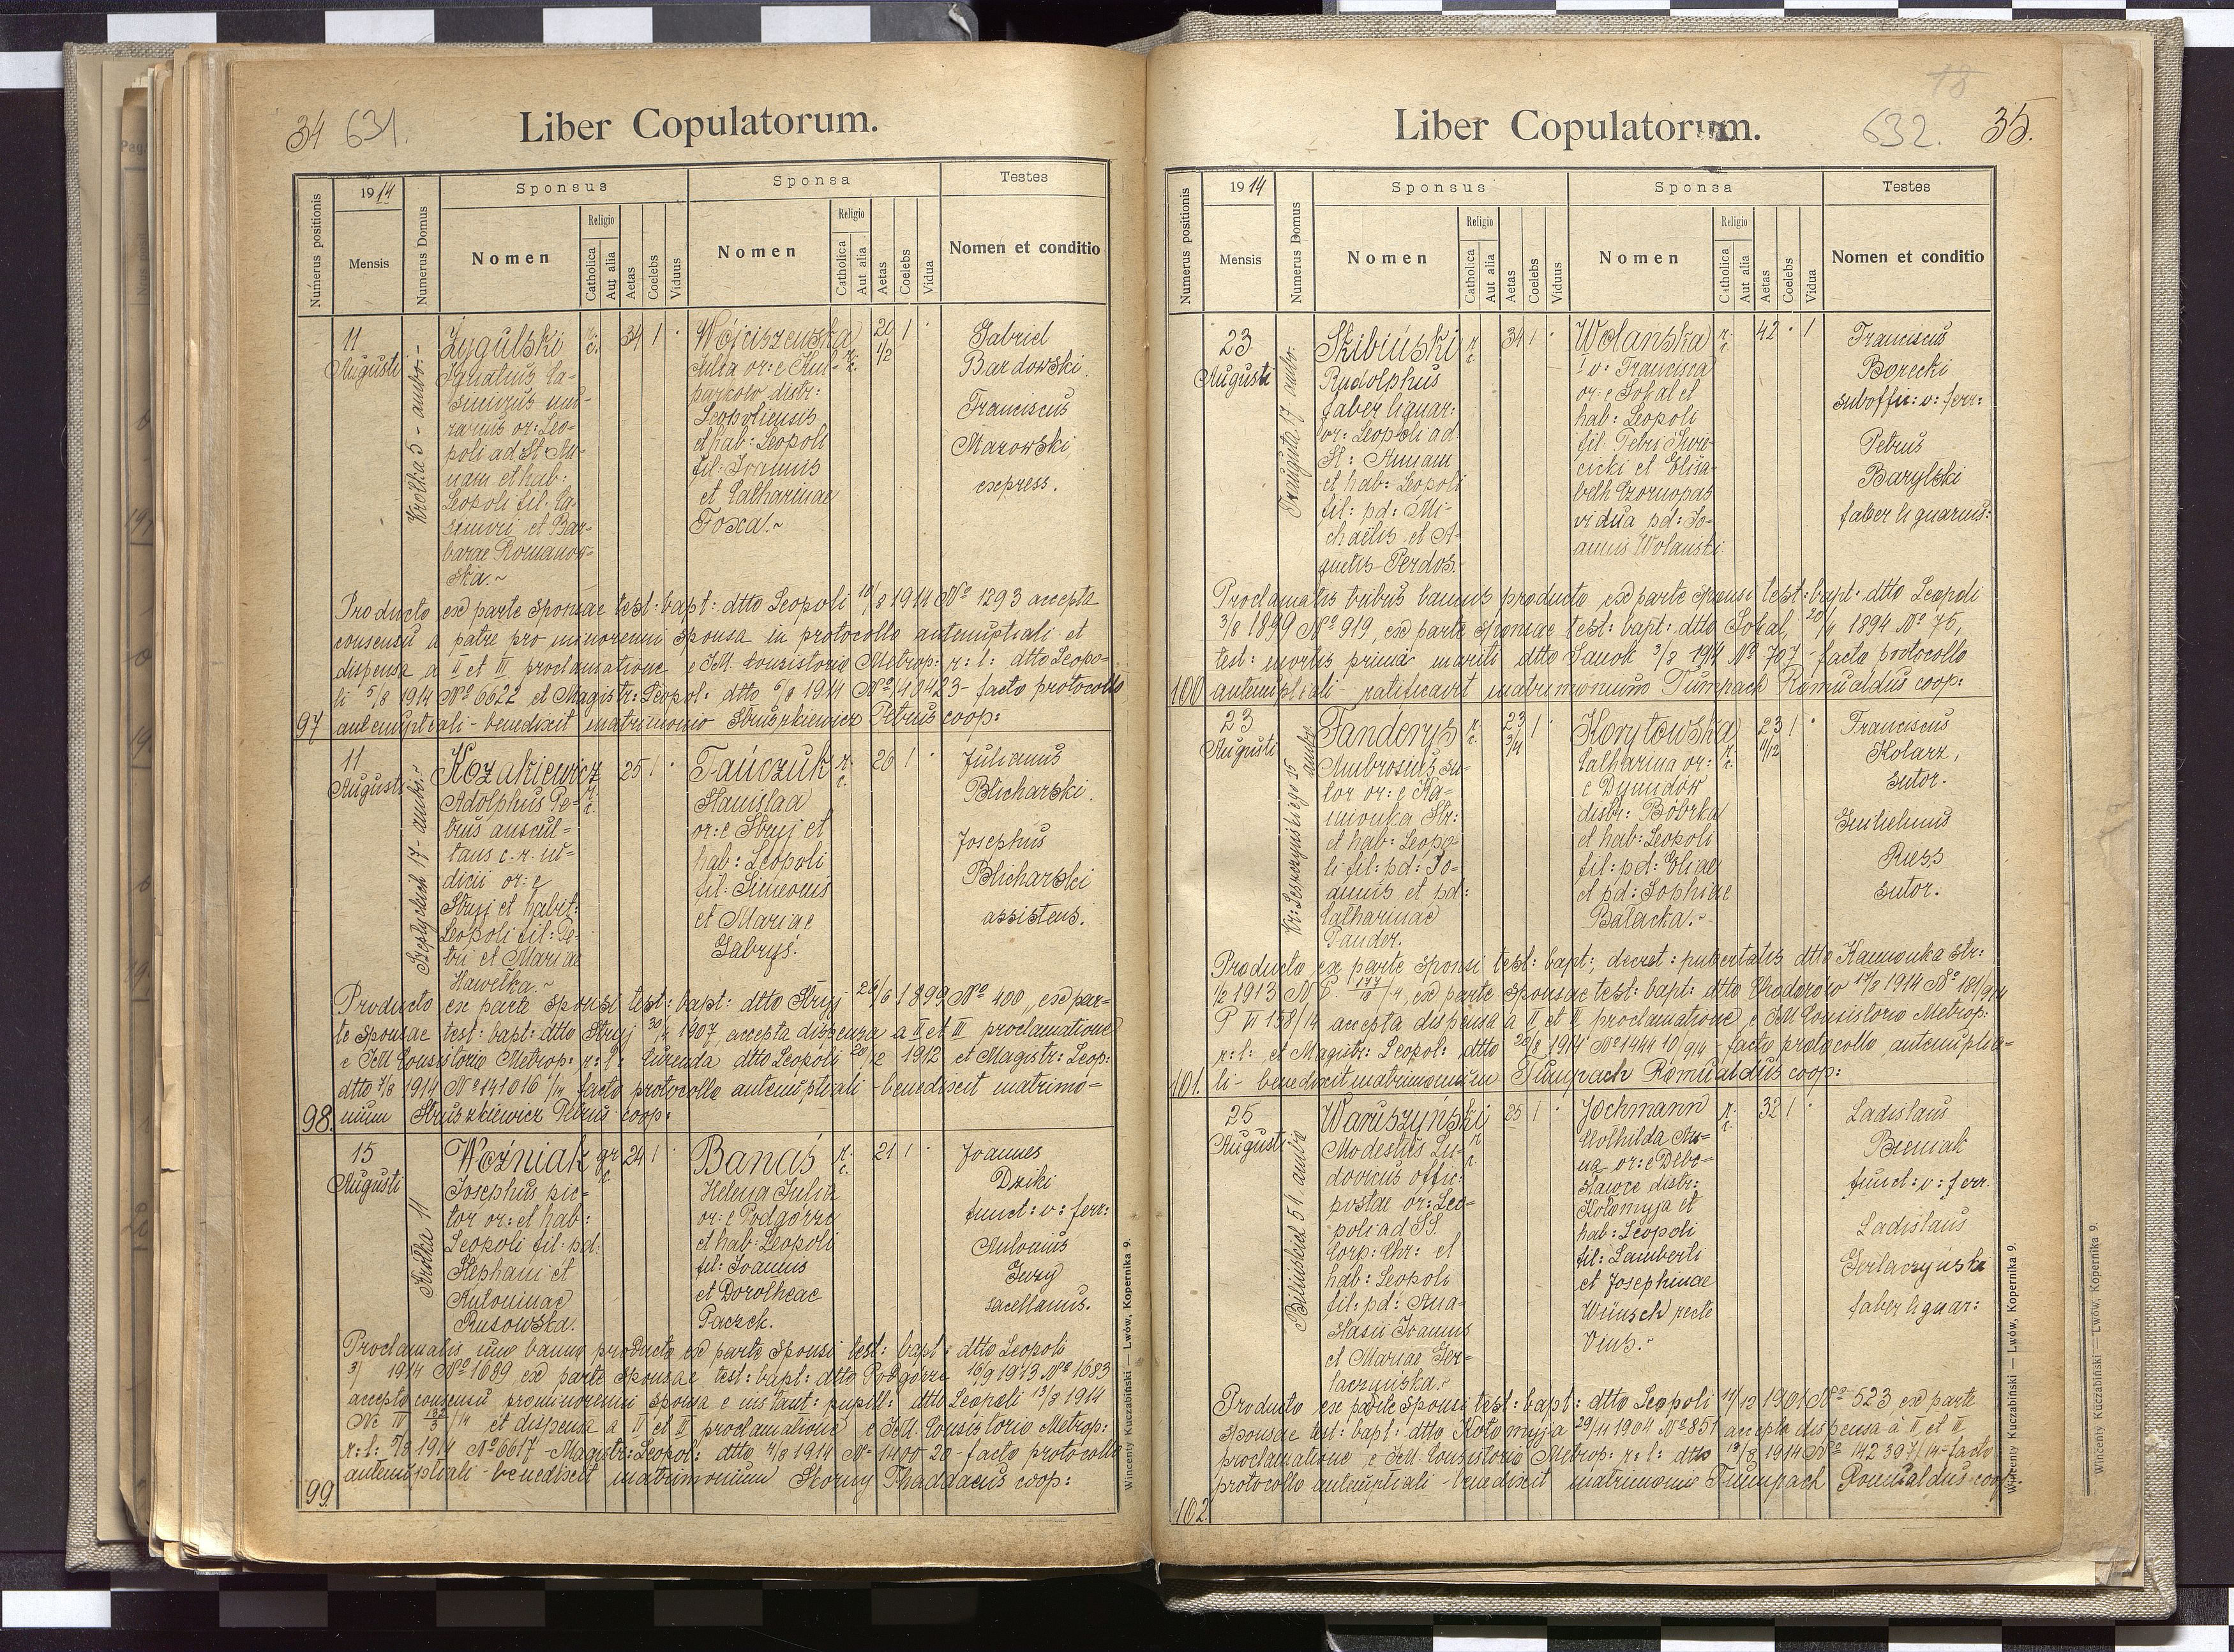 34 631.
Liber Copulatorum.
Numerus positionis
1914
Mensis
Numerus Domus
Sponsus
Nomen
Religio
Catholica
Aut alia
Aetas
Coelebs
Viduus
Sponsa
Nomen
Religio
Catholica
Aut alia
Aetas
Coelebs
Vidua
Testes
Nomen et conditio
97
11
Augusti
Krótka 5 - ambo. -
Zygulski
Ignatius Ca-
simirus
rarius or: Leo-
poli ad St. An-
nam et hab:
Leopoli fil: Ca-
simiri et Bar-
barae Romanow-
ska.~
r. c.
34 1 ·
Wojciszewska
Julia or: e Kul-
parkow distr:
Leopoliensis
et hab: Leopoli
fil: Joannis
et Catharinae
Foxa!~
r. c.
20 1/2
1 ·
Gabriel
Bardowski.
Franciscus
Mazowski,
express.
Producto ex parte sponsae test: bapt: dtto Leopoli 10/8 1914 No 1293 accepto
consensu a patre pro minorenni sponsa in protocollo antenuptiali et
dispensa a II et III proclamatione e IM. Consistorio Metrop: r: l: dtto Leopo-
li 5/8 1914 No 6622 et Magistr: Leopol: dtto 6/8 1914 No 140423 - facto protocollo
antenuptiali - benedixit matrimonio Struszkiewicz Petrus coop:
98.
11
Augusti
Szeptyckich 17 - ambo.~
Kozakiewicz
Adolphus Pe-
trus auscul-
tans c. r. iu-
dicii or: e
Stryj et habit:
Leopoli fil: Pe-
tri et Mariae
Hawełka.~
r. c.
25 1 ·
Tańczuk
Stanislaa
or: e Stryj et
hab: Leopoli
fil: Simeonis
et Mariae
Gabryś.
r. c.
26 1 ·
Julianus
Blicharski.
Josephus
Blicharski
assistens.
Producto ex parte sponsi test: bapt: dtto Stryj 26/6 1899 No 400, ex par-
te sponsae test: bapt: dtto Stryj 1907, accepta dispensa a II et III proclamatione
e IM Consistorio Metrop: r: l: dtto Leopoli 20/12 1912 et Magistr: Leop:
dtto 7/8 1914 No 141016 /14 facto protocollo antenuptiali - benedixit matrimo-
nium Struszkiewicz Petrus coop:
99
15
Augusti
Krótka 11
Woźniak
Josephus pic-
tor or: et hab:
Leopoli fil: pd:
Stephani et
Antoninae
Rusowska.
gr. c.
24 1 ·
Banaś
Helena Julia
or: e Podgórze
et hab: Leopoli
fil: Joannis
et Dorotheae
Paczek.
r. c.
21 1 ·
Joannes
Dziki
funct: v: ferr:
Antonius
sacellanus.
Proclamatis uno banno producto ex parte sponsi test: bapt: dtto Leopoli
1914 No 1689 ex parte sponsae test: bapt: dtto Podgórze 16/9 1913 No 1683
accepto consensu prominorenni sponsa e instant: pupill: dtto Leopoli 13/8 1914
et dispensa a II et III proclamatione e IM. Consistorio Metrop:
r: l: 5/8 1914 No 6617 - Magistr: Leopol: dtto 7/8 1914 No 1400 20 - facto protocollo
antenuptiali - benedixit matrimonium Skorny Thaddaeus coop:
Wincenty Kuczabiński — Lwów, Kopernika 9.
18
632. 35.
Liber Copulatorum.
Numerus positionis
1914
Mensis
Numerus Domus
Sponsus
Nomen
Religio
Catholica
Aut alia
Aetas
Coelebs
Viduus
Sponsa
Nomen
Religio
Catholica
Aut alia
Aetas
Coelebs
Vidua
Testes
Nomen et conditio
100
23
Augusti
Traugutta 17 ambo.
Skibiński
Rudolphus
faber lignar:
or: Leopoli ad
St: Annam
et hab: Leopoli
fil: pd: Mi-
chaëlis et A-
gnetis Perdos.
r. c.
34 1 ·
Wolanska
I v: Francisca
or: e Sokal et
hab: Leopoli
fil: Petri Swi-
cicki et Elisa-
beth Czornopas
vidua pd: Jo-
annis Wolanski.
r. c.
42 · 1
Franciscus
Borecki
suboff: v: ferr:
Petrus
Barylski
faber lignarius:
Proclamatis tribus bannis producto ex parte sponsi test: bapt: dtto Leopoli
3/8 1899 No 919, ex parte sponsae test: bapt: dtto Sokal, 1894 No 75,
test: mortis primi mariti dtto Sanok 3/8 1914 No 707 - facto protocollo
antenuptiali - ratificavit matrimonium Tumpach Romualdus coop:
101.
23
Augusti
15 ambo
Fanderys
Ambrosius su-
tor or: e Ka-
mionka Str:
et hab: Leopo-
li fil: pd: Jo-
annis et pd:
Catharinae
Pander.
r. c.
23 3/4
1 ·
Korytowska
Catharina or:
e Dymidów
distr: Bóbrka
et hab: Leopoli
fil: pd: Eliae
et pd: Sophiae
Balacka.~
r. c.
23
1 ·
Franciscus
Kolarz,
sutor.
Guilielmus
Riess
sutor.
Producto ex parte sponsi test: bapt:, decret: pubertatis dtto Kamionka Str:
1/2 1913, ex parte sponsae test: bapt: dtto Chodorow 1914 No 181/914
P VI 158/14 accepta dispensa a II et III proclamatione e IM. Consistorio Metrop:
r: l: et Magistr: Leopol: dtto 20/8 1914 No 1444 10/914 - facto protocollo antenuptia-
li - benedixit matrimonium Tumpach Romualdus coop:
102.
25
Augusti
Bilińskich 51 ambo
Waruszyński
Modestus Lu-
dovicus offic:
postae or: Leo-
poli ad SS.
Corp: Chr: et
hab: Leopoli
fil: pd: Ana-
stasii Joannis
et Mariae Ger-
laczyńska.~
r. c.
25 1 ·
Jochmann
Clothilda An-
na or: e Debe-
sławce distr:
Kołomyja et
hab: Leopoli
fil: Lamberti
et Josephinae
Wünsch recte
Vins.~
r. c.
32 1 ·
Ladislaus
Bieniak
funct: v: ferr.
Ladislaus
Gerlaczyński
faber lignar:
Producto ex parte sponsi test: bapt: dtto Leopoli 14/12 1901 No 523 ex parte
sponsae test: bapt: dtto Kołomyja 29/11 1904 No 851 accepta dispensa a II et III
proclamatione e IM. Consistorio Metrop: r: l: dtto 13/8 1914 No 142 397/14 - facto
protocollo antenuptiali - benedixit matrimonio Tumpach Romualdus coop:
Wincenty Kuczabiński — Lwów, Kopernika 9.
Wincenty Kuczabiński — Lwów, Kopernika 9.